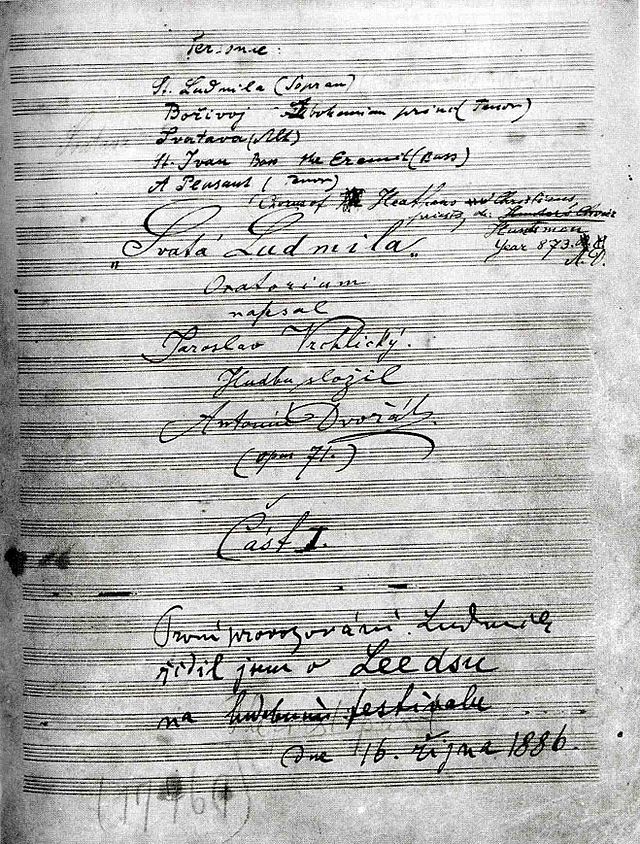 St. Ludmila (Sopran)
Bořivoj bohemian princ (Tenor)
Svatava (Alt)
St. Ivan Bass the Eremit (Bass)
A Peasant (Tenor)
Chorus of Heathens and Christians
priests, etc.
Husdsman
Year 873.
A. D.
„Svatá Ludmila„
Oratorium
napsal
Jaroslav Vrchlický.
Hudbu složil
Antonín Dvořák.
(opus 71.)
Část I.
První provozování Ludmily
řídil jsem v Leedsu
na hudebním festivalu
dne 16. října 1886.